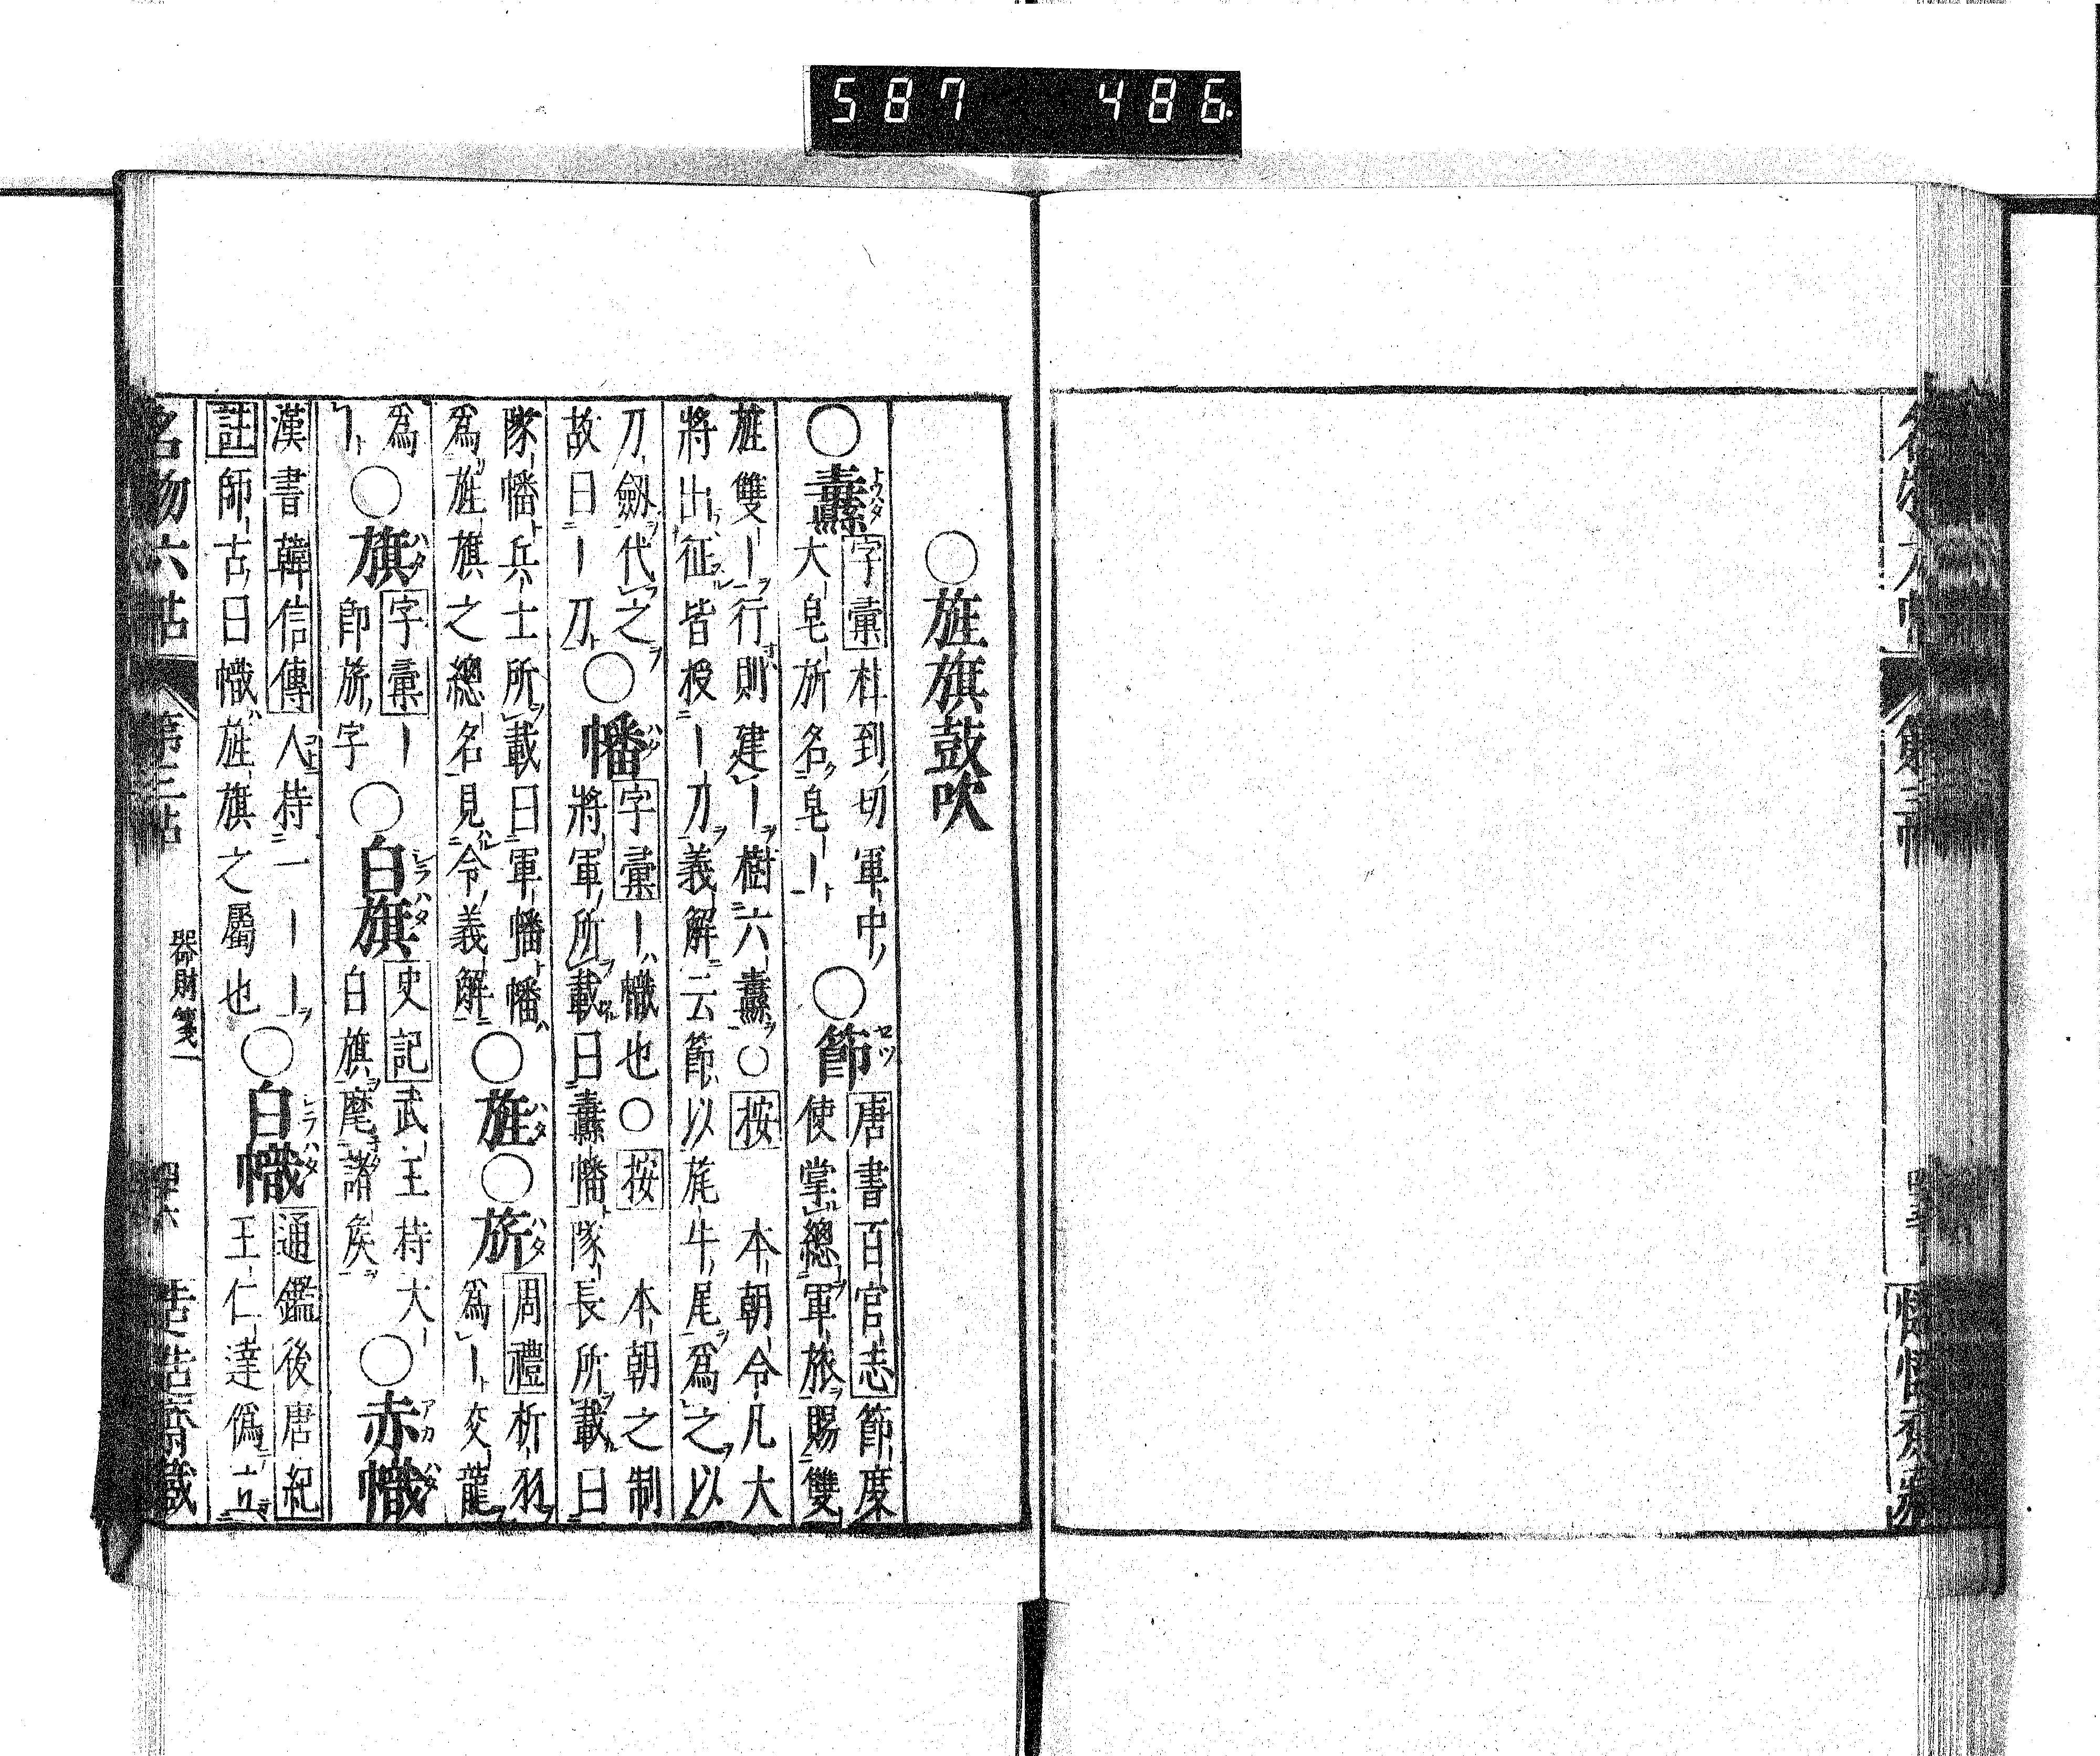 587 486
○旌旗鼓吹
○纛トウハタ
字彙杜到切軍中
大皂斾名皂ー
○節セツ
唐書百官志節度
使掌總軍旅賜雙
旌雙ー行則建ー樹六纛○按 本朝令凡大
將出征皆授ー刀義解云節以旄牛尾爲之以
刀劔代之
故曰ー刀
○幡ハタ
字彙ー幟也○按 本朝之制
將軍所載曰纛幡隊長所載曰
隊幡兵士所載曰軍幡幡
爲旌旗之總名見令義解
○旌ハタ○旂ハタ
周禮析羽
爲ー交龍
爲
ー
○旗ハタ
字彙ー
即旂字
○白旗シラハタ
史記武王持大
白旗麾諸矦
○赤幟アカハタ
漢書韓信傳人持一ーー
註師古曰幟旌旗之屬也
○白幟シラハタ
通鑑後唐紀
王仁達僞立
名物六帖 第三帖 器財箋一 四十六